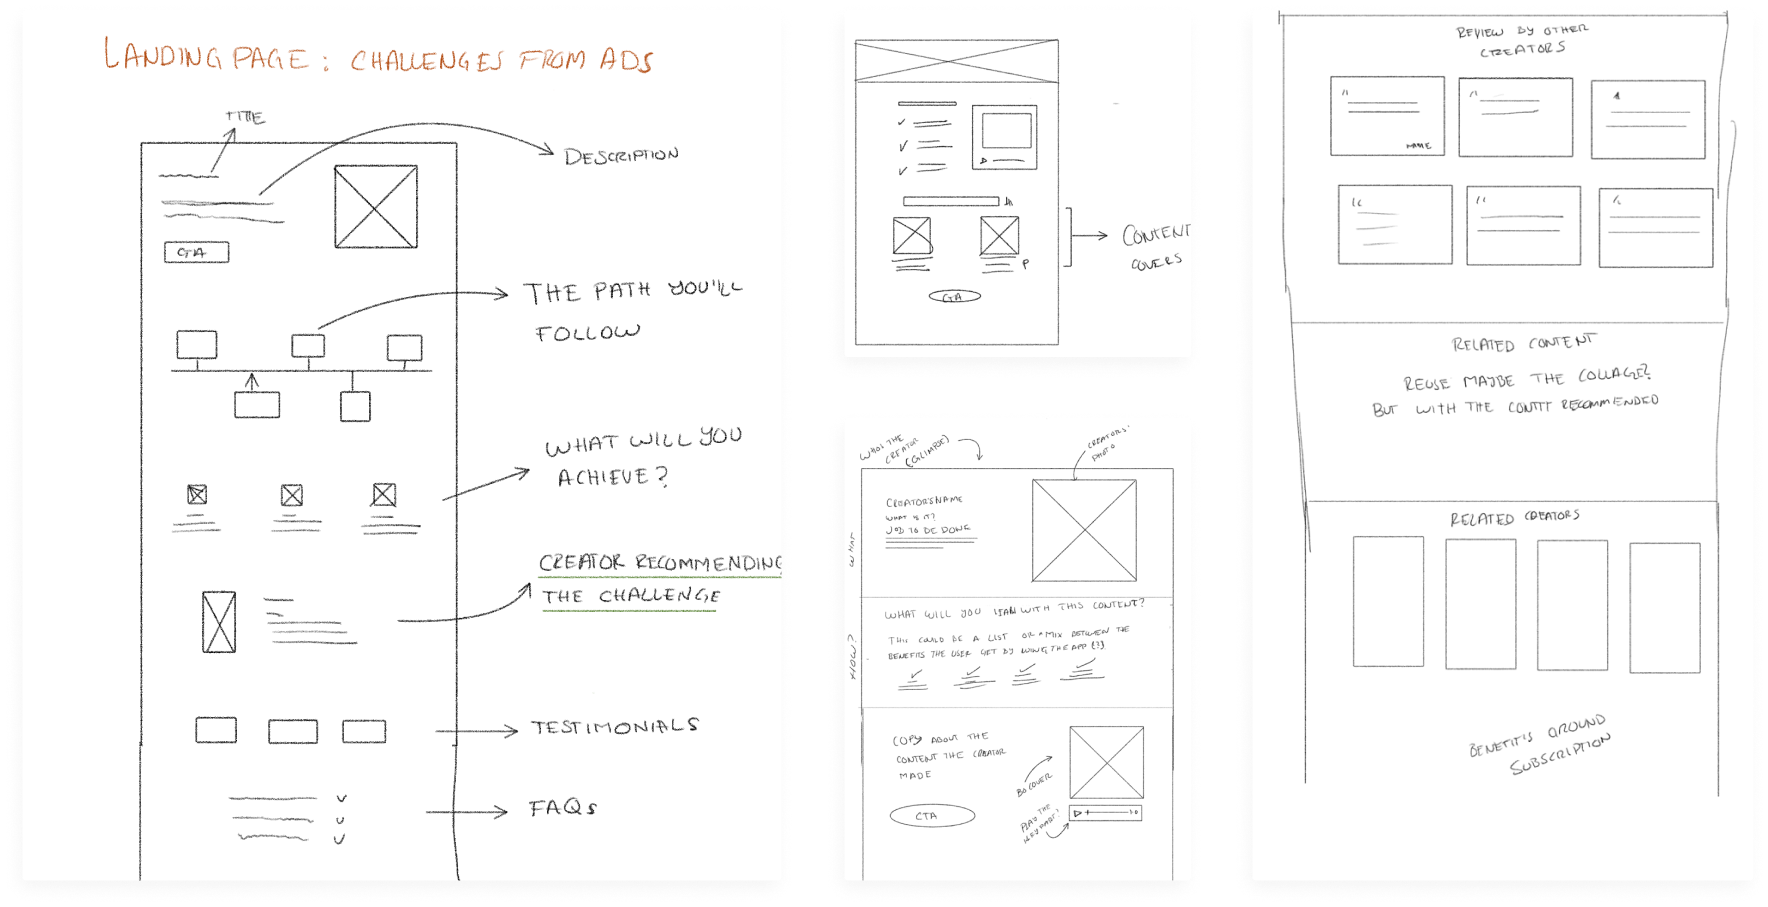 LANDING PAGE: CHALLENGES FROM ADS
TITLE
DESCRIPTION
CTA
THE PATH YOU'LL
FOLLOW
WHAT WILL YOU
ACHIEVE?
CREATOR RECOMMENDING
THE CHALLENGE
TESTIMONIALS
FAQs
CONTENT
COVERS
CTA
WHO'S THE
CREATOR
(GLIMPSE)
CREATORS'
PHOTO
CREATOR'S NAME
WHAT IS IT?
JOB TO BE DONE
WHAT
WHAT WILL YOU WITH THIS CONTENT?
HOW?
THIS COULD BE A LIST OR A MIX BETWEEN THE
BENEFITS THE USER GET BY USING THE APP (?)
COPY ABOUT THE
CONTENT THE CREATOR
MADE
CTA
COVER
THE
REVIEW BY OTHER
CREATORS
NAME
RELATED CONTENT
REUSE MAYBE THE COLLAGE?
BUT WITH THE RECOMMENDED
RELATED CREATORS
BENEFIT'S AROUND
SUBSCRIPTION